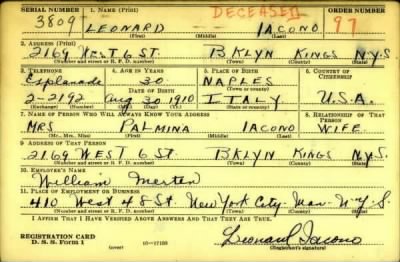 SERIAL NUMBER 1. NAME (Print) DECEASED ORDER NUMBER
3809 LEONARD IACONO 97
(First) (Middle) (Last)
2. ADDRESS (Print)
2169 WEST 6 ST. BKLYN KINGS N.Y.S
(Number and street or R. F. D. number) (Town) (County) (State)
3. TELEPHONE 4. AGE IN YEARS 5. PLACE OF BIRTH 6. COUNTRY OF CITIZENSHIP
Esplanade 30 NAPLES
DATE OF BIRTH (Town or county)
2-2192 Aug 30 1910 ITALY U.S.A.
(Exchange) (Number) (Mo.) (Day) (Yr.) (State or country)
7. NAME OF PERSON WHO WILL ALWAYS KNOW YOUR ADDRESS 8. RELATIONSHIP OF THAT PERSON
MRS PALMINA IACONO WIFE
(Mr., Mrs., Miss) (First) (Middle) (Last)
9. ADDRESS OF THAT PERSON
2169 WEST 6 ST. BKLYN KINGS N.Y.S.
(Number and street or R. F. D. number) (Town) (County) (State)
10. EMPLOYER'S NAME
William Merten
11. PLACE OF EMPLOYMENT OR BUSINESS
410 West 48 St. New York City. Man. N.Y.S.
(Number and street or R. F. D. number) (Town) (County) (State)
I AFFIRM THAT I HAVE VERIFIED ABOVE ANSWERS AND THAT THEY ARE TRUE.
REGISTRATION CARD
D. S. S. Form 1 (over) 16-17105 Leonard Iacono
(Registrant's signature)